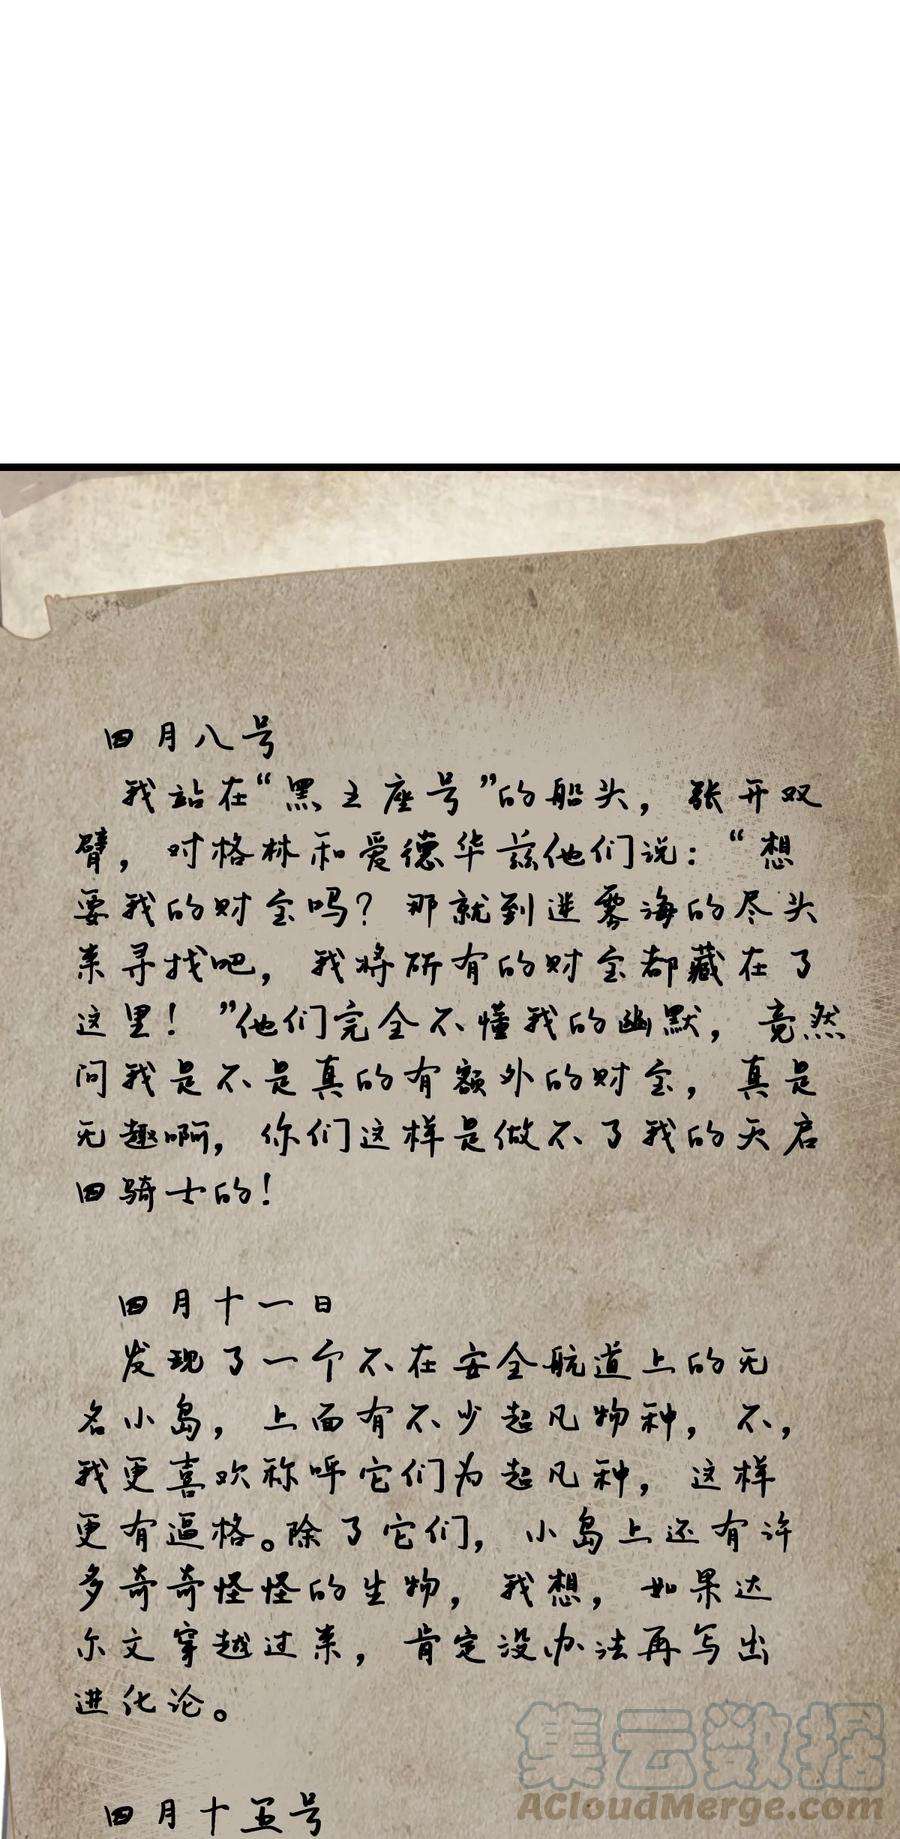 四月八号
我站在“黑王座号”的船头，张开双
臂，对格林和爱德华兹他们说：“想
要我的财宝吗？那就到迷雾海的尽头
来寻找吧，我将所有的财宝都藏在了
这里！”他们完全不懂我的幽默，竟然
问我是不是真的有额外的财宝，真是
无趣啊，你们这样是做不了我的天启
四骑士的！
四月十一日
发现了一个不在安全航道上的无
名小岛，上面有不少超凡物种，不，
我更喜欢称呼它们为超凡种，这样
更有逼格。除了它们，小岛上还有许
多奇奇怪怪的生物，我想，如果达
尔文穿越过来，肯定没办法再写出
进化论。
四月十五号
集云数据
ACloudMerge.com